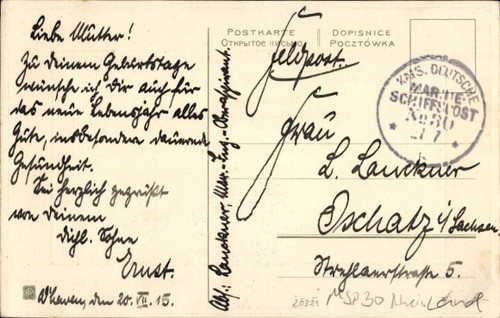 Liebe Mutter!
Zu deinem Geburtstage
wünsche ich Dir auch für
das neue Lebensjahr alles
Gute, insbesondere dauernde
Gesundheit.
Sei herzlich gegrüßt
von deinem
dichl. Sohne
Ernst.
W'haven, den 20. VII. 15.
Abs: Lanckner, Mar. Ing. Oberaspirant.
POSTKARTE
Открытое письмо
DOPISNICE
POCZTÓWKA
Feldpost.
KAIS. DEUTSCHE
MARINE-
SCHIFFSPOST
No 30
Frau
L. Lanckner
Oschatz i/Sachsen,
Strehlaerstraße 5.
MSP 30 Rheinland